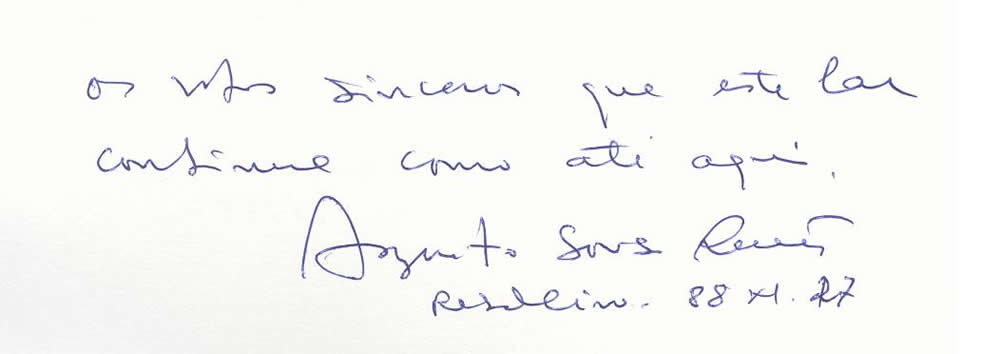 os votos sinceros que este lar
continue como até aqui.
Augusto Sous
88 XI. 27